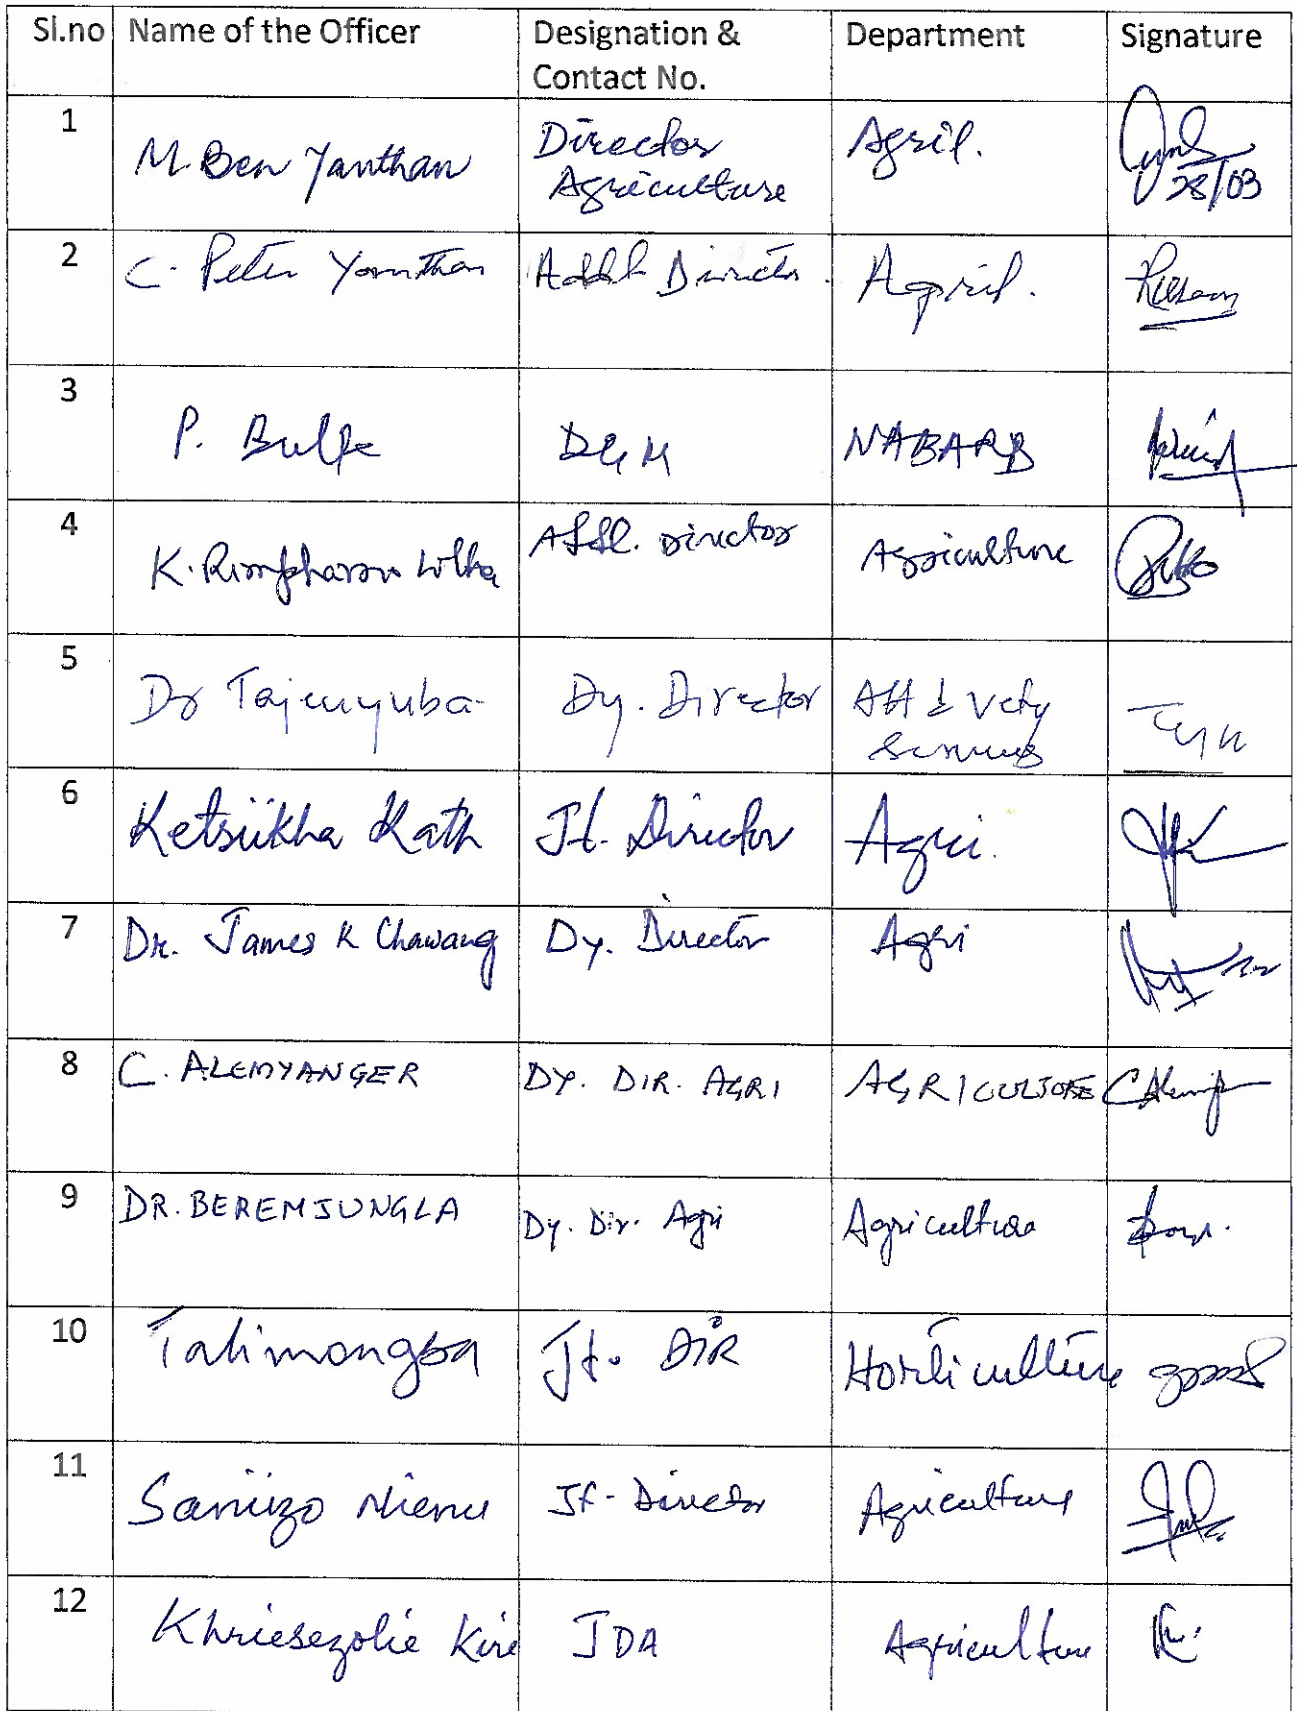 Sl.no Name of the Officer Designation & Department Signature
Contact No.
1 M. Ben Yanthan Director Agril.
Agriculture
28/03
2 C. Peter Yanthan Addl Director. Agril.
3 P. Bulke DGM NABARD
4 K. Lotha Addl. Director Agriculture
5 Dr Tajenyuba Dy. Director AH & Vety
Services
6 Ketsükha Kath Jt. Director Agri.
7 Dr. James K Chawang Dy. Director Agri
8 C. ALEMYANGER DY. DIR. AGRI AGRICULTURE
9 DR. BEREMJUNGLA Dy. Dir. Agri Agriculture
10 Talimongba Jt. DIR Horticulture
11 Sanüzo Nienu Jt. Director Agriculture
12 Khriesezolie Kire JDA Agriculture